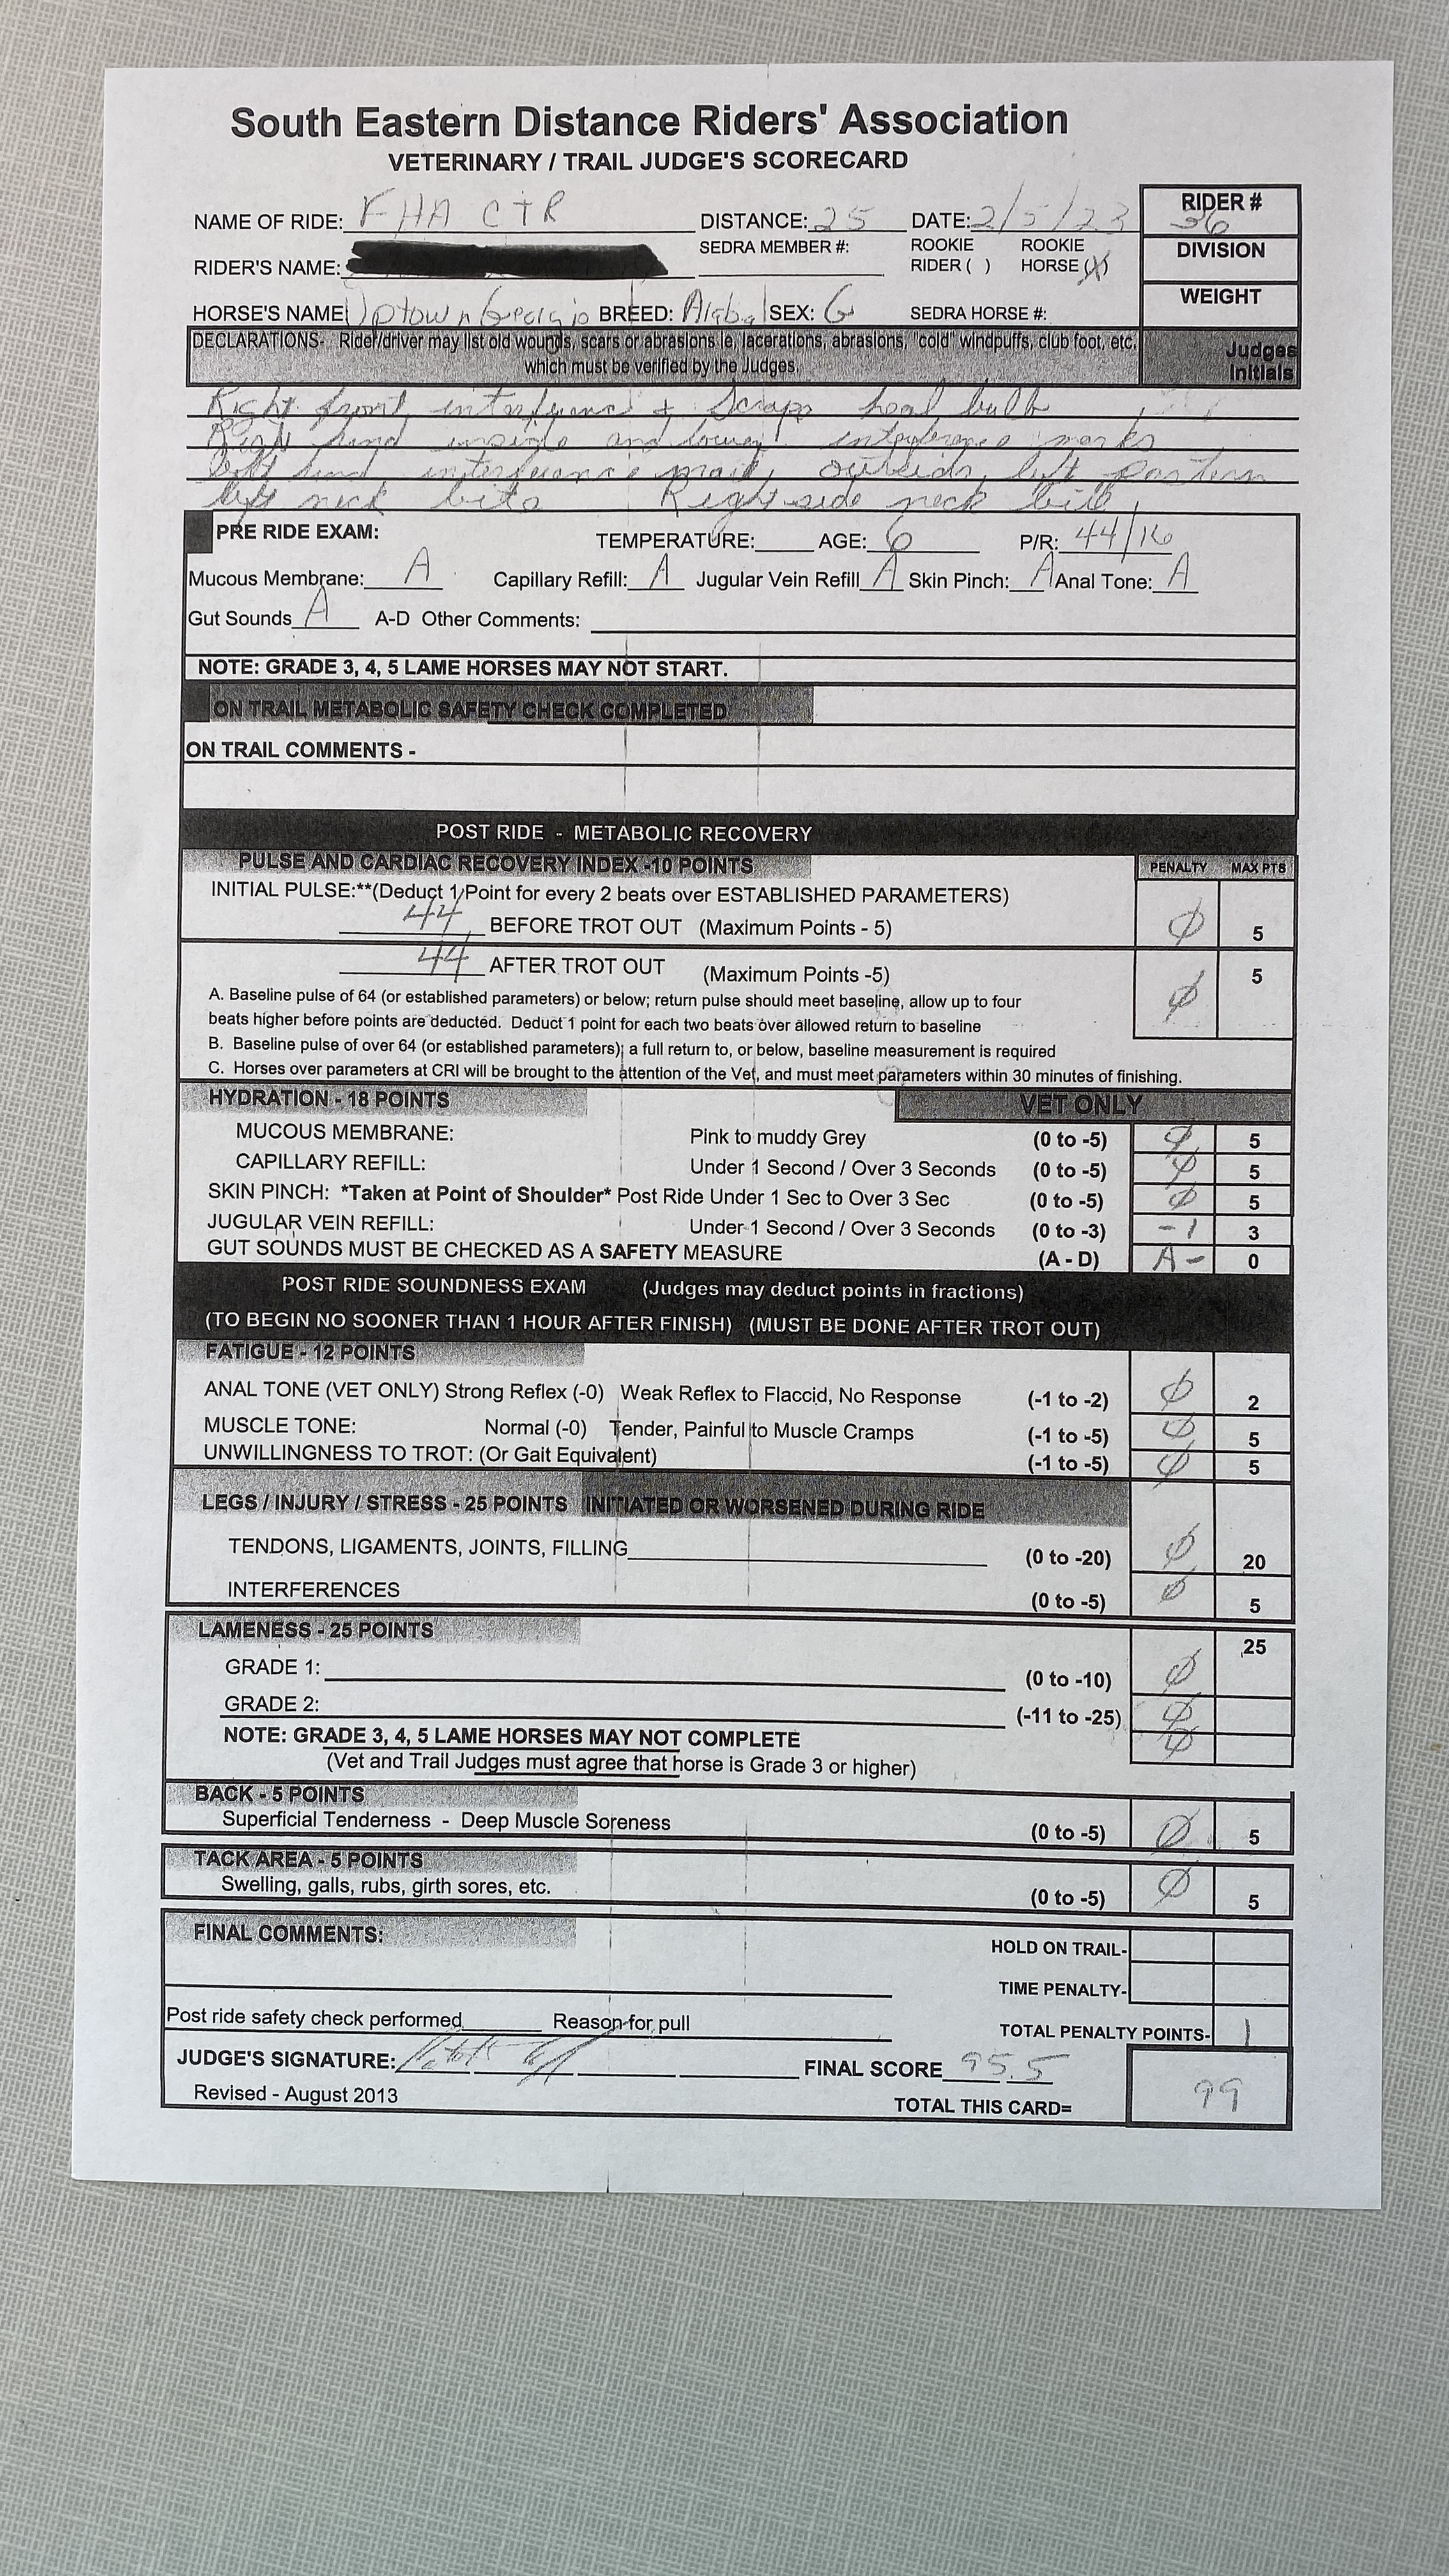 South Eastern Distance Riders' Association
VETERINARY / TRAIL JUDGE'S SCORECARD
NAME OF RIDE: FHA CTR DISTANCE: 25 DATE: 2/5/23 RIDER # 36
RIDER'S NAME: SEDRA MEMBER #: ROOKIE RIDER ( ) ROOKIE HORSE (X) DIVISION
HORSE'S NAME Uptown Georgio BREED: SEX: G SEDRA HORSE #: WEIGHT
DECLARATIONS- Rider/driver may list old wounds, scars or abrasions ie, lacerations, abrasions, "cold" windpuffs, club foot, etc.
which must be verified by the Judges. Judges Initials
Right front + Scrape heal bulb
Right hind inside and interference marks
hind interference mark, outside left pastern
left neck bite Right side neck bite
PRE RIDE EXAM: TEMPERATURE: AGE: 6 P/R: 44/16
Mucous Membrane: A Capillary Refill: A Jugular Vein Refill A Skin Pinch: A Anal Tone: A
Gut Sounds A A-D Other Comments:
NOTE: GRADE 3, 4, 5 LAME HORSES MAY NOT START.
ON TRAIL METABOLIC SAFETY CHECK COMPLETED
ON TRAIL COMMENTS -
POST RIDE - METABOLIC RECOVERY
PULSE AND CARDIAC RECOVERY INDEX -10 POINTS PENALTY MAX PTS
INITIAL PULSE:**(Deduct 1 Point for every 2 beats over ESTABLISHED PARAMETERS)
44 BEFORE TROT OUT (Maximum Points - 5) Ø 5
44 AFTER TROT OUT (Maximum Points -5) Ø 5
A. Baseline pulse of 64 (or established parameters) or below; return pulse should meet baseline, allow up to four
beats higher before points are deducted. Deduct 1 point for each two beats over allowed return to baseline
B. Baseline pulse of over 64 (or established parameters); a full return to, or below, baseline measurement is required
C. Horses over parameters at CRI will be brought to the attention of the Vet, and must meet parameters within 30 minutes of finishing.
HYDRATION - 18 POINTS VET ONLY
MUCOUS MEMBRANE: Pink to muddy Grey (0 to -5) Ø 5
CAPILLARY REFILL: Under 1 Second / Over 3 Seconds (0 to -5) Ø 5
SKIN PINCH: *Taken at Point of Shoulder* Post Ride Under 1 Sec to Over 3 Sec (0 to -5) Ø 5
JUGULAR VEIN REFILL: Under 1 Second / Over 3 Seconds (0 to -3) -1 3
GUT SOUNDS MUST BE CHECKED AS A SAFETY MEASURE (A - D) A- 0
POST RIDE SOUNDNESS EXAM (Judges may deduct points in fractions)
(TO BEGIN NO SOONER THAN 1 HOUR AFTER FINISH) (MUST BE DONE AFTER TROT OUT)
FATIGUE - 12 POINTS
ANAL TONE (VET ONLY) Strong Reflex (-0) Weak Reflex to Flaccid, No Response (-1 to -2) Ø 2
MUSCLE TONE: Normal (-0) Tender, Painful to Muscle Cramps (-1 to -5) Ø 5
UNWILLINGNESS TO TROT: (Or Gait Equivalent) (-1 to -5) Ø 5
LEGS / INJURY / STRESS - 25 POINTS INITIATED OR WORSENED DURING RIDE
TENDONS, LIGAMENTS, JOINTS, FILLING (0 to -20) Ø 20
INTERFERENCES (0 to -5) Ø 5
LAMENESS - 25 POINTS 25
GRADE 1: (0 to -10) Ø
GRADE 2: (-11 to -25) Ø
NOTE: GRADE 3, 4, 5 LAME HORSES MAY NOT COMPLETE Ø
(Vet and Trail Judges must agree that horse is Grade 3 or higher)
BACK - 5 POINTS
Superficial Tenderness - Deep Muscle Soreness (0 to -5) Ø 5
TACK AREA - 5 POINTS
Swelling, galls, rubs, girth sores, etc. (0 to -5) Ø 5
FINAL COMMENTS: HOLD ON TRAIL-
TIME PENALTY-
Post ride safety check performed Reason for pull TOTAL PENALTY POINTS- 1
JUDGE'S SIGNATURE: FINAL SCORE 95.5
Revised - August 2013 TOTAL THIS CARD= 99